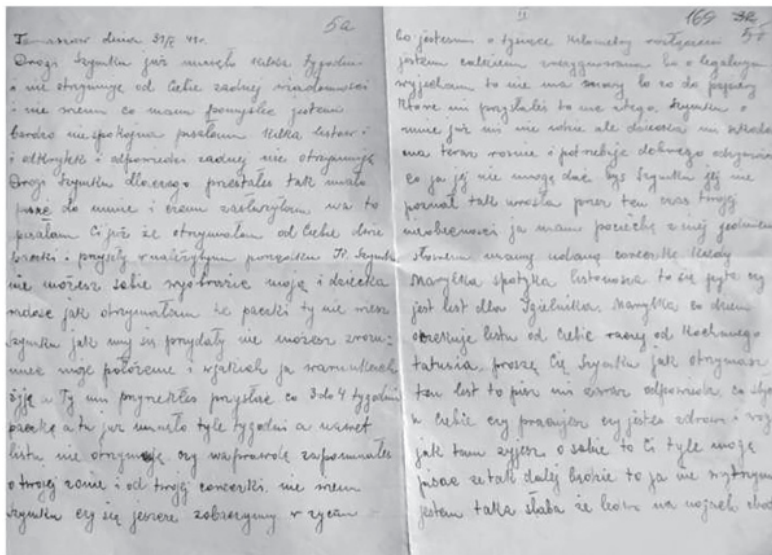 5a
Tomaszów dnia 31/X 41r.
Drogi Szymku już minęło kilka tygodni
i nie otrzymuję od Ciebie żadnej wiadomości
i nie wiem co mam pomyśleć jestem
bardzo niespokojna posłałam kilka listów i
i odkrytek i odpowiedzi żadnej nie otrzymuję
Drogi Szymku dlaczego przestałeś tak mało
pisać do mnie i czem zasłużyłam na to
pisałam Ci już że otrzymałam od Ciebie dwie
paczki i przyszły w należytym porządku K. Szymku
nie możesz sobie wyobrazić moją i dziecka
radość jak otrzymałam te paczki ty nie wiesz
Szymku jak mnie się przydały nie możesz zrozu-
mieć moje położenie i w jakich ja warunkach
żyję a Ty mi przyrzekłeś przysłać co 3 do 4 tygodni
paczkę a tu już minęło tyle tygodni a nawet
listu nie otrzymuję czy naprawdę zapomniałeś
o twojej żonie i od twojej córeczki. nie wiem
Szymku czy się jeszcze zobaczymy w życiu
II
169
5
bo jesteśmy o tysiące kilometry rozłączeni
jestem całkiem zrezygnowana bo o legalnym
wyjechaniu to nie ma mowy bo co do papiery
które mi przysłałeś to na nic. Szymku o
mnie już mi nie idzie ale dziecka mi szkoda
ona teraz rośnie i potrzebuje dobrego odżywiania
co ja jej nie mogę dać byś Szymku jej nie
poznał tak urosła przez ten czas twojej
nieobecności ja mam pociechę z niej jednem
słowem mamy udaną córeczkę kiedy
Maryłka spotyka listonosza to się pyta czy
jest list dla Igielnika. Maryłka co dzień
oczekuje listu od Ciebie raczej od kochanego
tatusia, proszę Cię Szymku jak otrzymasz
ten list to pisz mi zaraz odpowiedź, co słych
u Ciebie czy pracujesz czy jesteś zdrów i
jak tam żyjesz. o sobie to Ci tyle mogę
pisać że tak dalej będzie to ja nie wytrzym
jestem taka słaba że ledwo na nogach cho